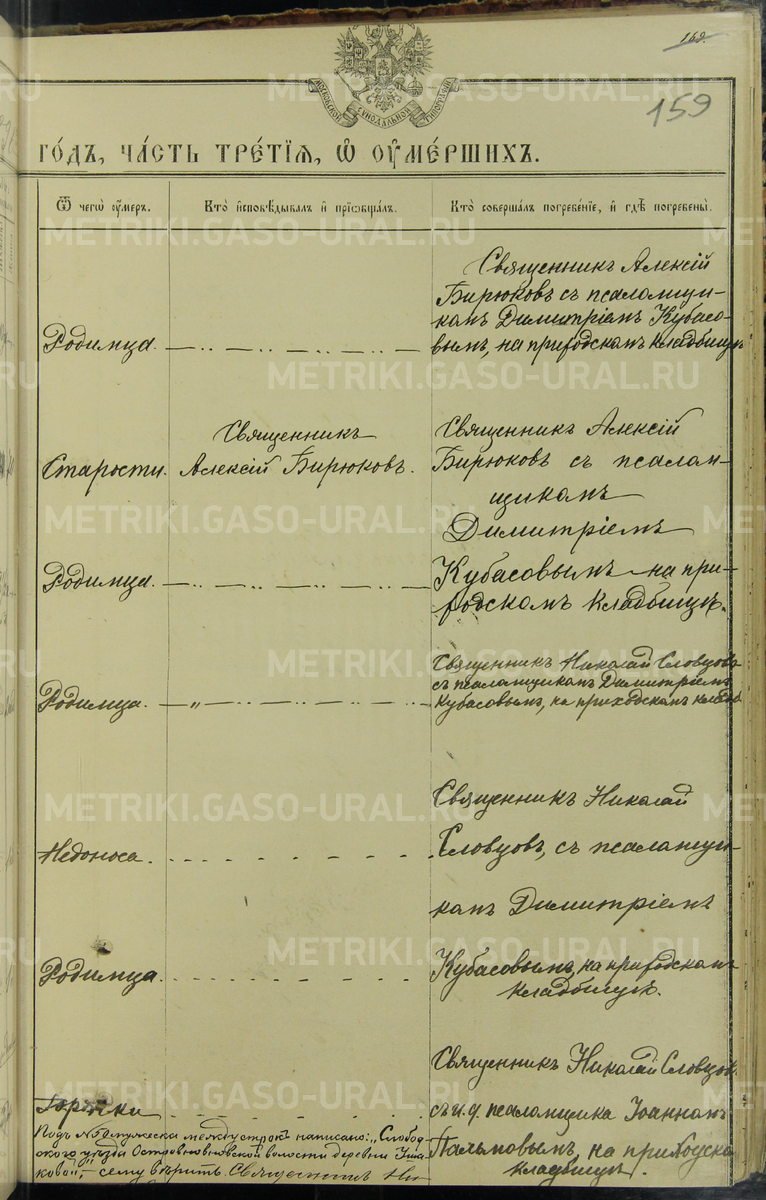 169.
159
МОСКОВСКОЙ СѴНОДАЛЬНОЙ ТИПОГРАФІИ
ГО́ДЪ, ЧА́СТЬ ТРЕ́ТІѦ, Ѽ ОУМЕ́РШИХЪ.
Ѿ чегѡ̀ оу́меръ.
Кто̀ и҆сповѣ́дывалъ и҆ прїѡбща́лъ.
Кто̀ соверша́лъ погребе́нїе, и҆ гдѣ̀ погребены̀.
Родимца.
Священникъ Алексій
Бирюковъ съ псаломщи-
комъ Димитріемъ Кубасо-
вымъ, на приходскомъ кладбищѣ
Старости.
Священникъ
Алексій Бирюковъ.
Священникъ Алексій
Бирюковъ съ псалом-
щикомъ
Димитріемъ
Родимца.
Кубасовымъ на при-
ходскомъ кладбищѣ.
Родимца.
Священникъ Николай Словцовъ
съ псаломщикомъ Димитріемъ
Кубасовымъ, на приходскомъ кладб.
Недоноса.
Священникъ Николай
Словцовъ, съ псаломщи-
комъ Димитріемъ
Родимца.
Кубасовымъ, на приходскомъ
кладбищѣ.
Горячки
Священникъ Николай Словцов
съ и. д. псаломщика Іоанномъ
Пальмовымъ, на приходско
кладбищѣ.
Подъ № мужеска между строкъ написано: „Слобод-
скаго уѣзда волости деревни
сему вѣрить. Священникъ Ни-
METRIKI.GASO-URAL.RU